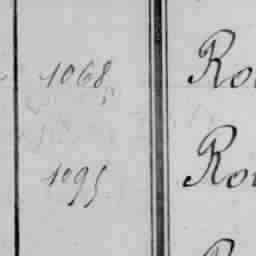 1068 Ro
1095 Ro